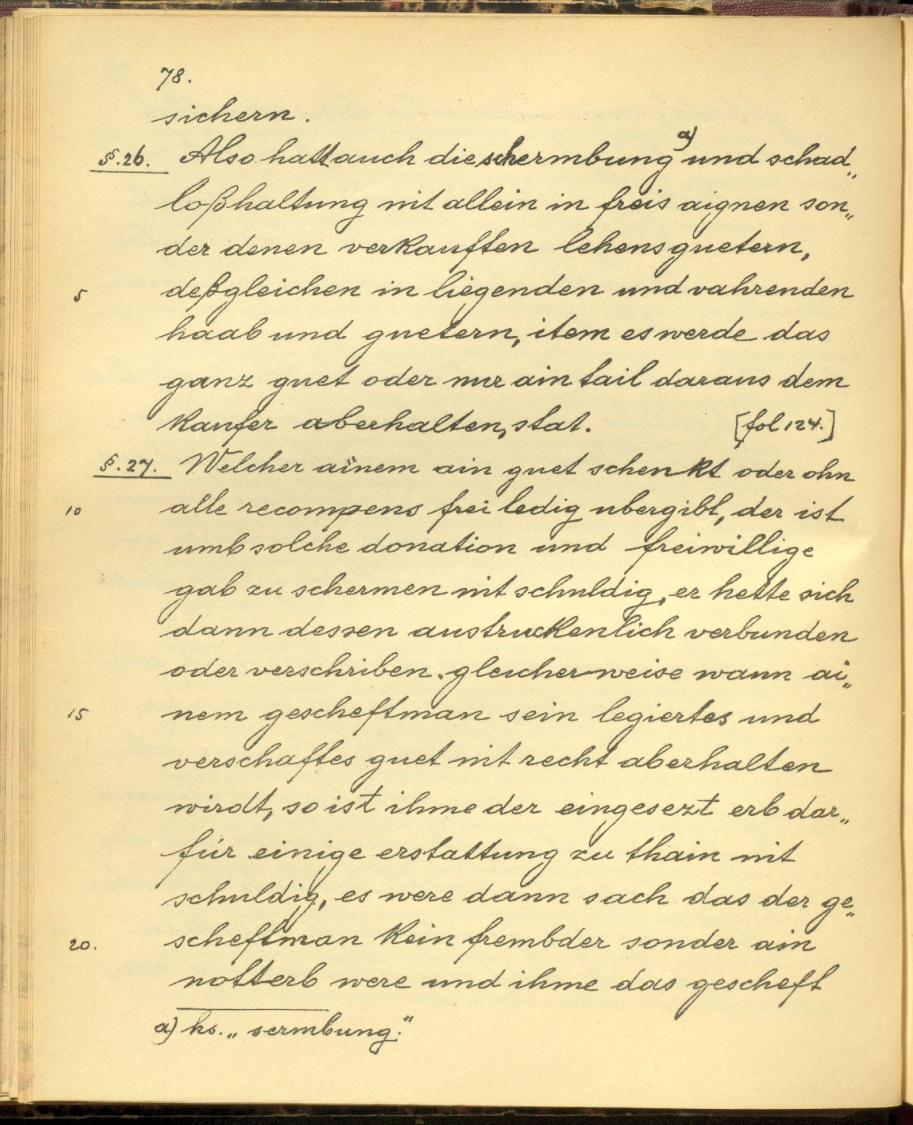 78.
sichern.
§.26. Also hatt auch die schermbung a) und schad„
loßhaltung nit allein in freis aignen son„
der denen verkauften lehensguetern,
5 deßgleichen in liegenden und vahrenden
haab und guetern, item es werde das
ganz guet oder nur ain tail daraus dem
kaufer aberhalten, stat. [fol 124.]
§.27. Welcher ainem ain guet schenkt oder ohn
10 alle recompens frei ledig ubergibt, der ist
umb solche donation und freiwillige
gab zu schermen nit schuldig, er hette sich
dann dessen austruckenlich verbunden
oder verschriben. gleicherweise wann ai„
15 nem gescheftman sein legiertes und
verschaftes guet nit recht aberhalten
wirdt, so ist ihme der eingesezt erb dar„
für einige erstattung zu thain nit
schuldig, es were dann sach das der ge„
20. scheftman kein frembder sonder ain
notterb were und ihme das gescheft
a) hs. „sermbung."